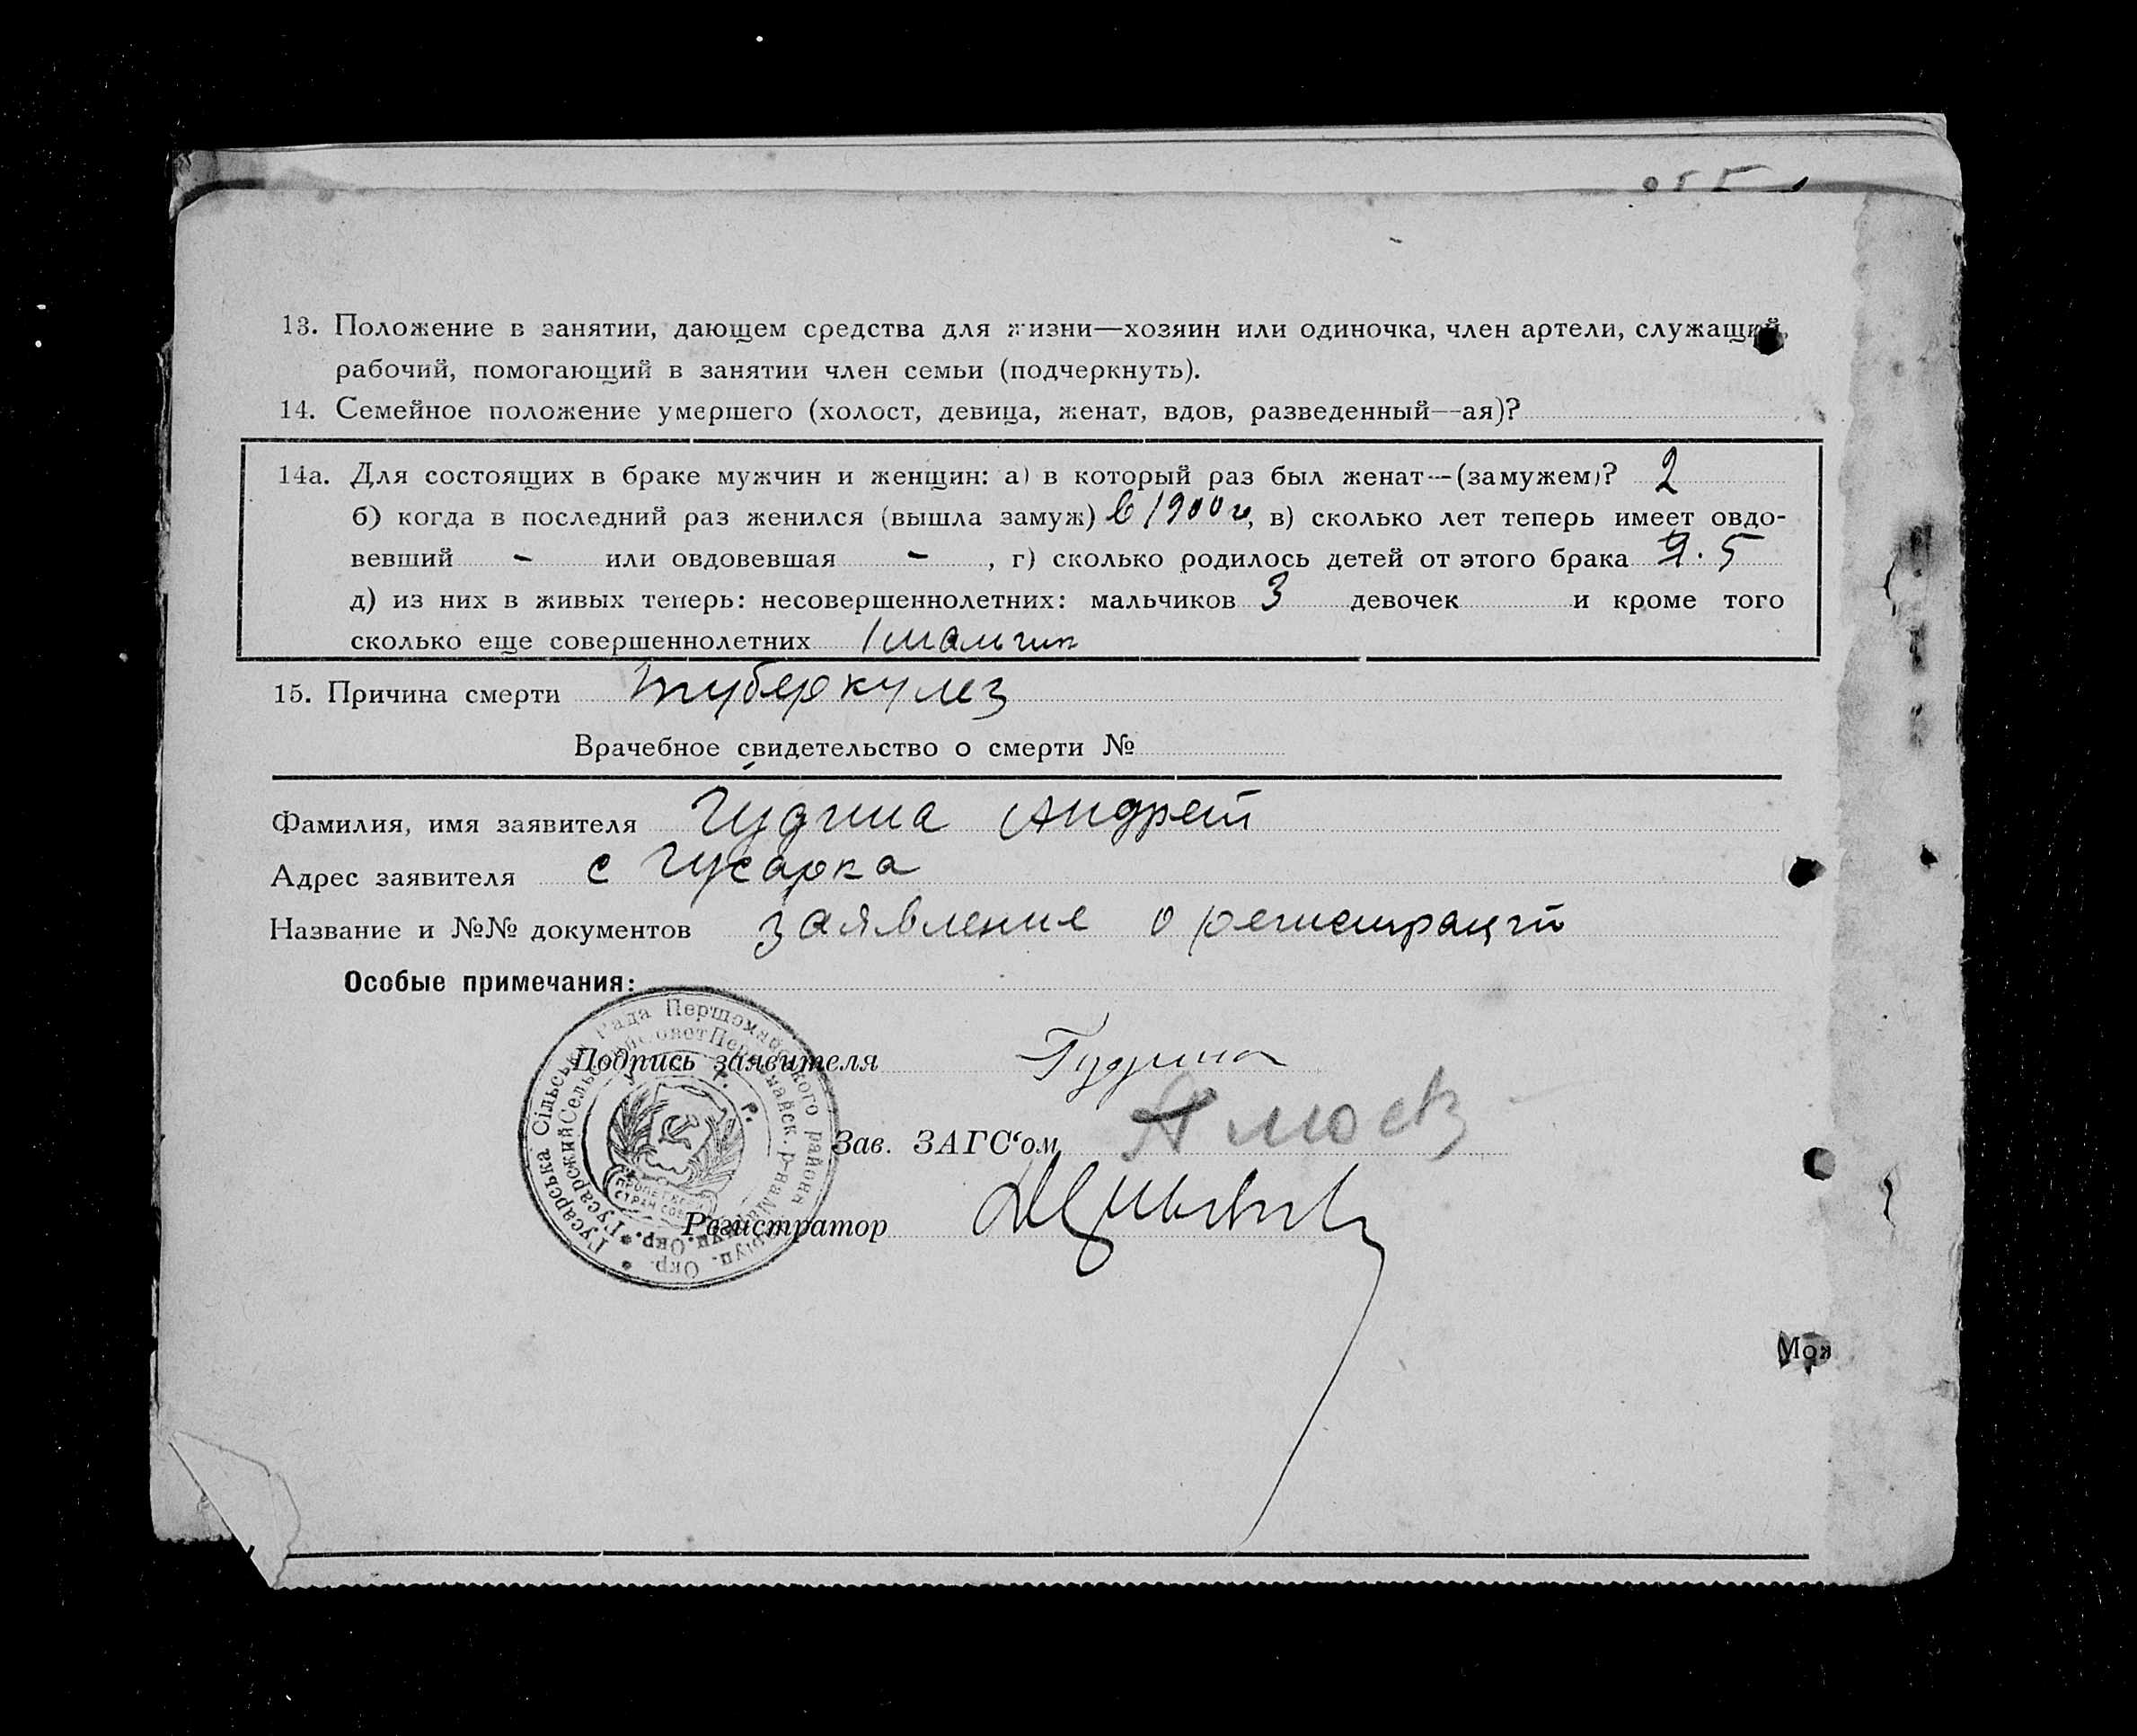 13. Положение в занятии, дающем средства для жизни—хозяин или одиночка, член артели, служащий,
рабочий, помогающий в занятии член семьи (подчеркнуть).
14. Семейное положение умершего (холост, девица, женат, вдов, разведенный—ая)?
14а. Для состоящих в браке мужчин и женщин: а) в который раз был женат—(замужем)? 2
б) когда в последний раз женился (вышла замуж) в 1900 г, в) сколько лет теперь имеет овдо-
вевший - или овдовевшая - , г) сколько родилось детей от этого брака 5
д) из них в живых теперь: несовершеннолетних: мальчиков 3 девочек и кроме того
сколько еще совершеннолетних 1 мальчик
15. Причина смерти туберкулез
Врачебное свидетельство о смерти №
Фамилия, имя заявителя Гудина Андрей
Адрес заявителя с Гусарка
Название и №№ документов заявление о регистраций
Особые примечания:
Гусарська Сільська Рада Першомайского района Маріуп. Окр.
Гусарский Сельсовет Первомайск. р-на Мариуп. Окр.
У. С. Р. Р.
Подпись заявителя Гудина
Зав. ЗАГС'ом
Регистратор